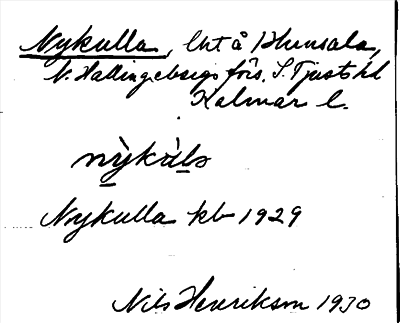 Nykulla, lht å Blunsala,
N. Hallingebergs förs. S. Tjusts hd
Kalmar l.
Nykulla kb 1929
Nils Henrikson 1930